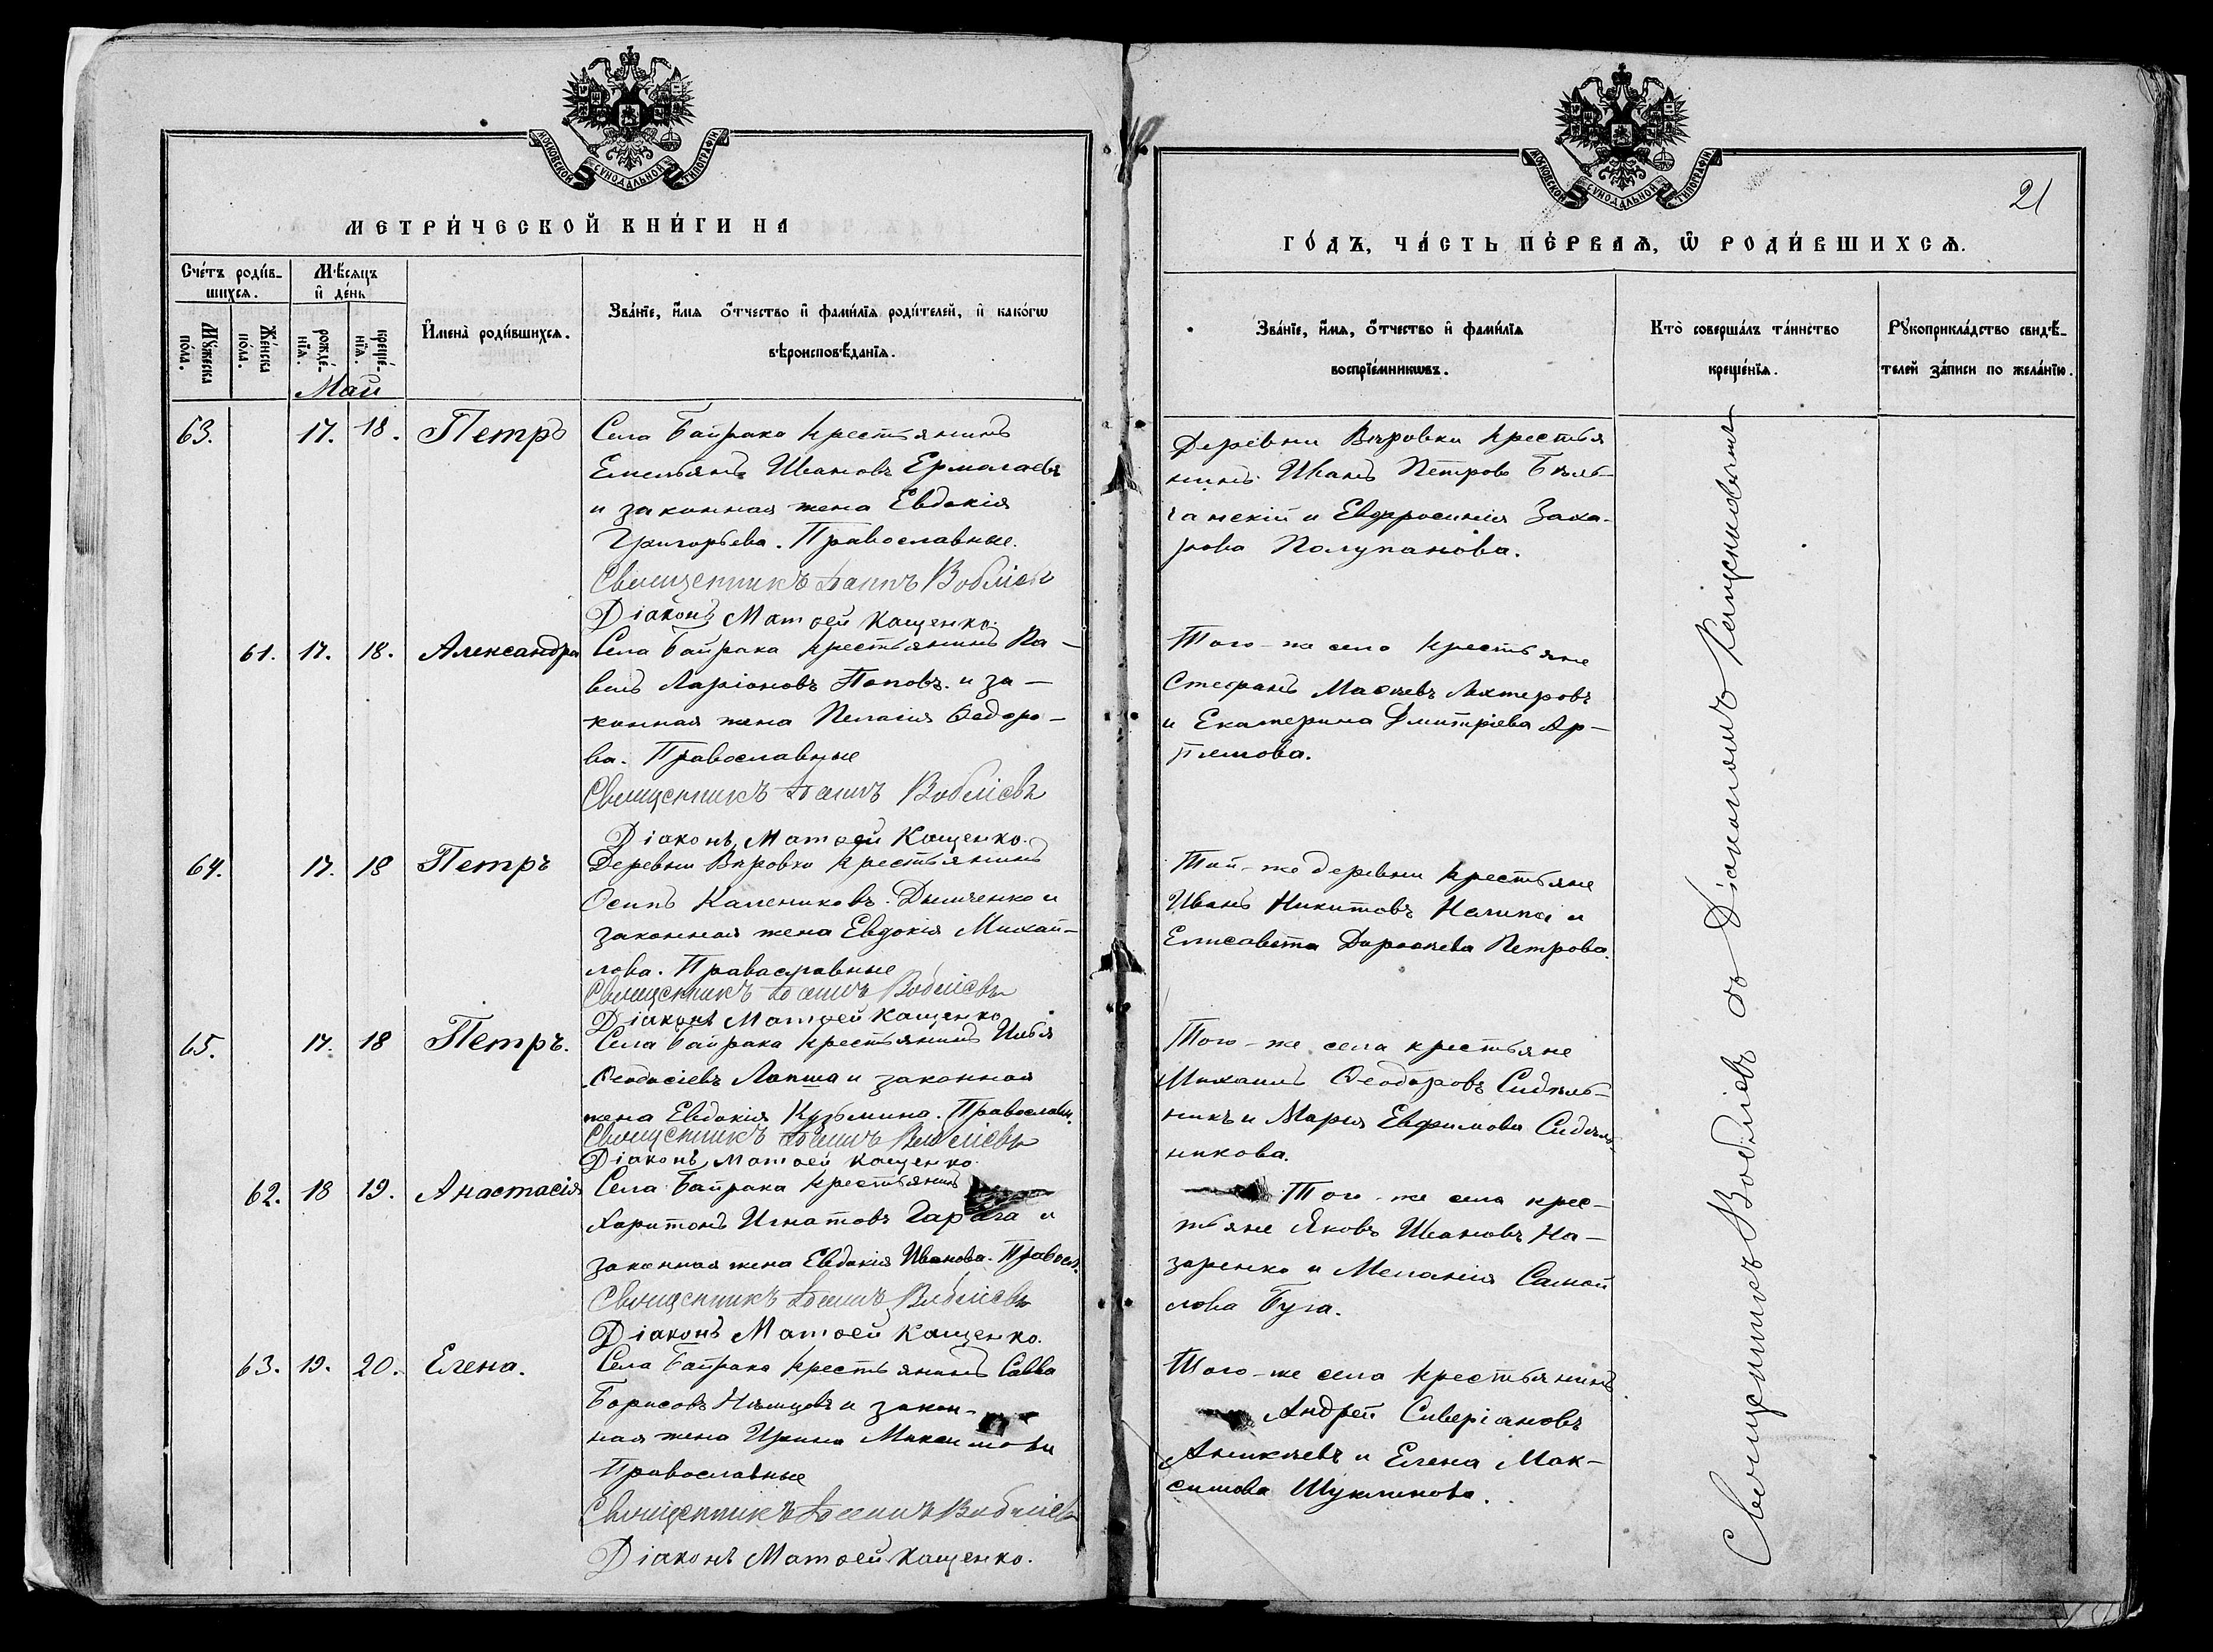 МОСКОВСКОЙ СѴНОДАЛЬНОЙ ТИПОГРАФІИ.
МЕТРИ́ЧЕСКОЙ КНИ́ГИ НА
Сче́тъ роди́в-
шихся.
Мѣ́сяцъ
и҆ де́нь
Мꙋ́жеска
по́ла.
Же́нска
по́ла.
рожде́-
нїѧ.
креще́-
нїѧ.
И҆мена̀ роди́вшихсѧ.
Зва́нїе, и҆́мѧ ѻ҆́тчество и҆ фами́лїѧ роди́телей, и҆ како́гѡ
вѣроисповѣ́данїѧ.
Май
63. 17. 18. Петръ Села Байрака крестьянинъ
Емельянъ Ивановъ Ермолаевъ
и законная жена Евдокія
Григорьева. Православные.
Священникъ Воблiевъ
Діаконъ Матѳей Кащенко.
61. 17. 18. Александра Села Байрака крестьянинъ Па-
велъ Ларіоновъ Поповъ и за-
конная жена Пелагія Ѳедоро-
ва. Православные
Священникъ Воблiевъ
Діаконъ Матѳей Кащенко.
64. 17. 18 Петръ Деревни Вѣровки крестьянинъ
Осипъ Калениковъ Дымченко и
законная жена Евдокія Михай-
лова. Православные
Священникъ Воблiевъ
Діаконъ Матѳей Кащенко
65. 17. 18 Петръ. Села Байрака крестьянинъ Илья
Ѳеодосіевъ Лапша и законная
жена Евдокія Кузьмина. Православн.
Священникъ Воблiевъ
Діаконъ Матѳей Кащенко.
62. 18 19. Анастасія Села Байрака крестьянинъ
Харитонъ Игнатовъ Гарага и
законная жена Евдокія Иванова. Правосл.
Священникъ Воблiевъ
Діаконъ Матѳей Кащенко.
63. 19. 20. Елена. Села Байрака крестьянинъ Савва
Борисовъ Нѣмцевъ и закон-
ная жена Ирина Максимова
Православные
Священникъ Воблiевъ
Діаконъ Матѳей Кащенко.
МОСКОВСКОЙ СѴНОДАЛЬНОЙ ТИПОГРАФІИ.
21
ГО́ДЪ, ЧА́СТЬ ПЕ́РВАѦ, Ѡ҆ РОДИ́ВШИХСѦ.
Зва́нїе, и҆́мѧ, ѻ҆́тчество и҆ фами́лїѧ
воспрїе́мникѡвъ.
Кто̀ соверша́лъ та́инство
креще́нїѧ.
Рꙋкоприкла́дство свидѣ́-
телей за́писи по жела́нїю.
Деревни Вѣровки крестья
нинъ Иванъ Петровъ Бѣль-
чанскій и Евфросинія Заха-
рова Полупанова.
Того-же села крестьяне
Стефанъ Маѳіевъ Лахтеровъ
и Екатерина Дмитріева Ар-
темова.
Той-же деревни крестьяне
Иванъ Никитовъ и
Елисавета Дороѳеева Петрова.
Того-же села крестьяне
Михаилъ Ѳеодоровъ Сидѣль-
никъ и Марія Евфимова Сидѣль-
никова.
Того-же села крес-
тьяне Яковъ Ивановъ На-
заренко и Меланія Самой
лова Буга.
Того-же села крестьянинъ
Андрей Северіановъ
Аникѣевъ и Елена Мак-
симова Шуклинова.
Священникъ Воблiевъ съ Діакономъ